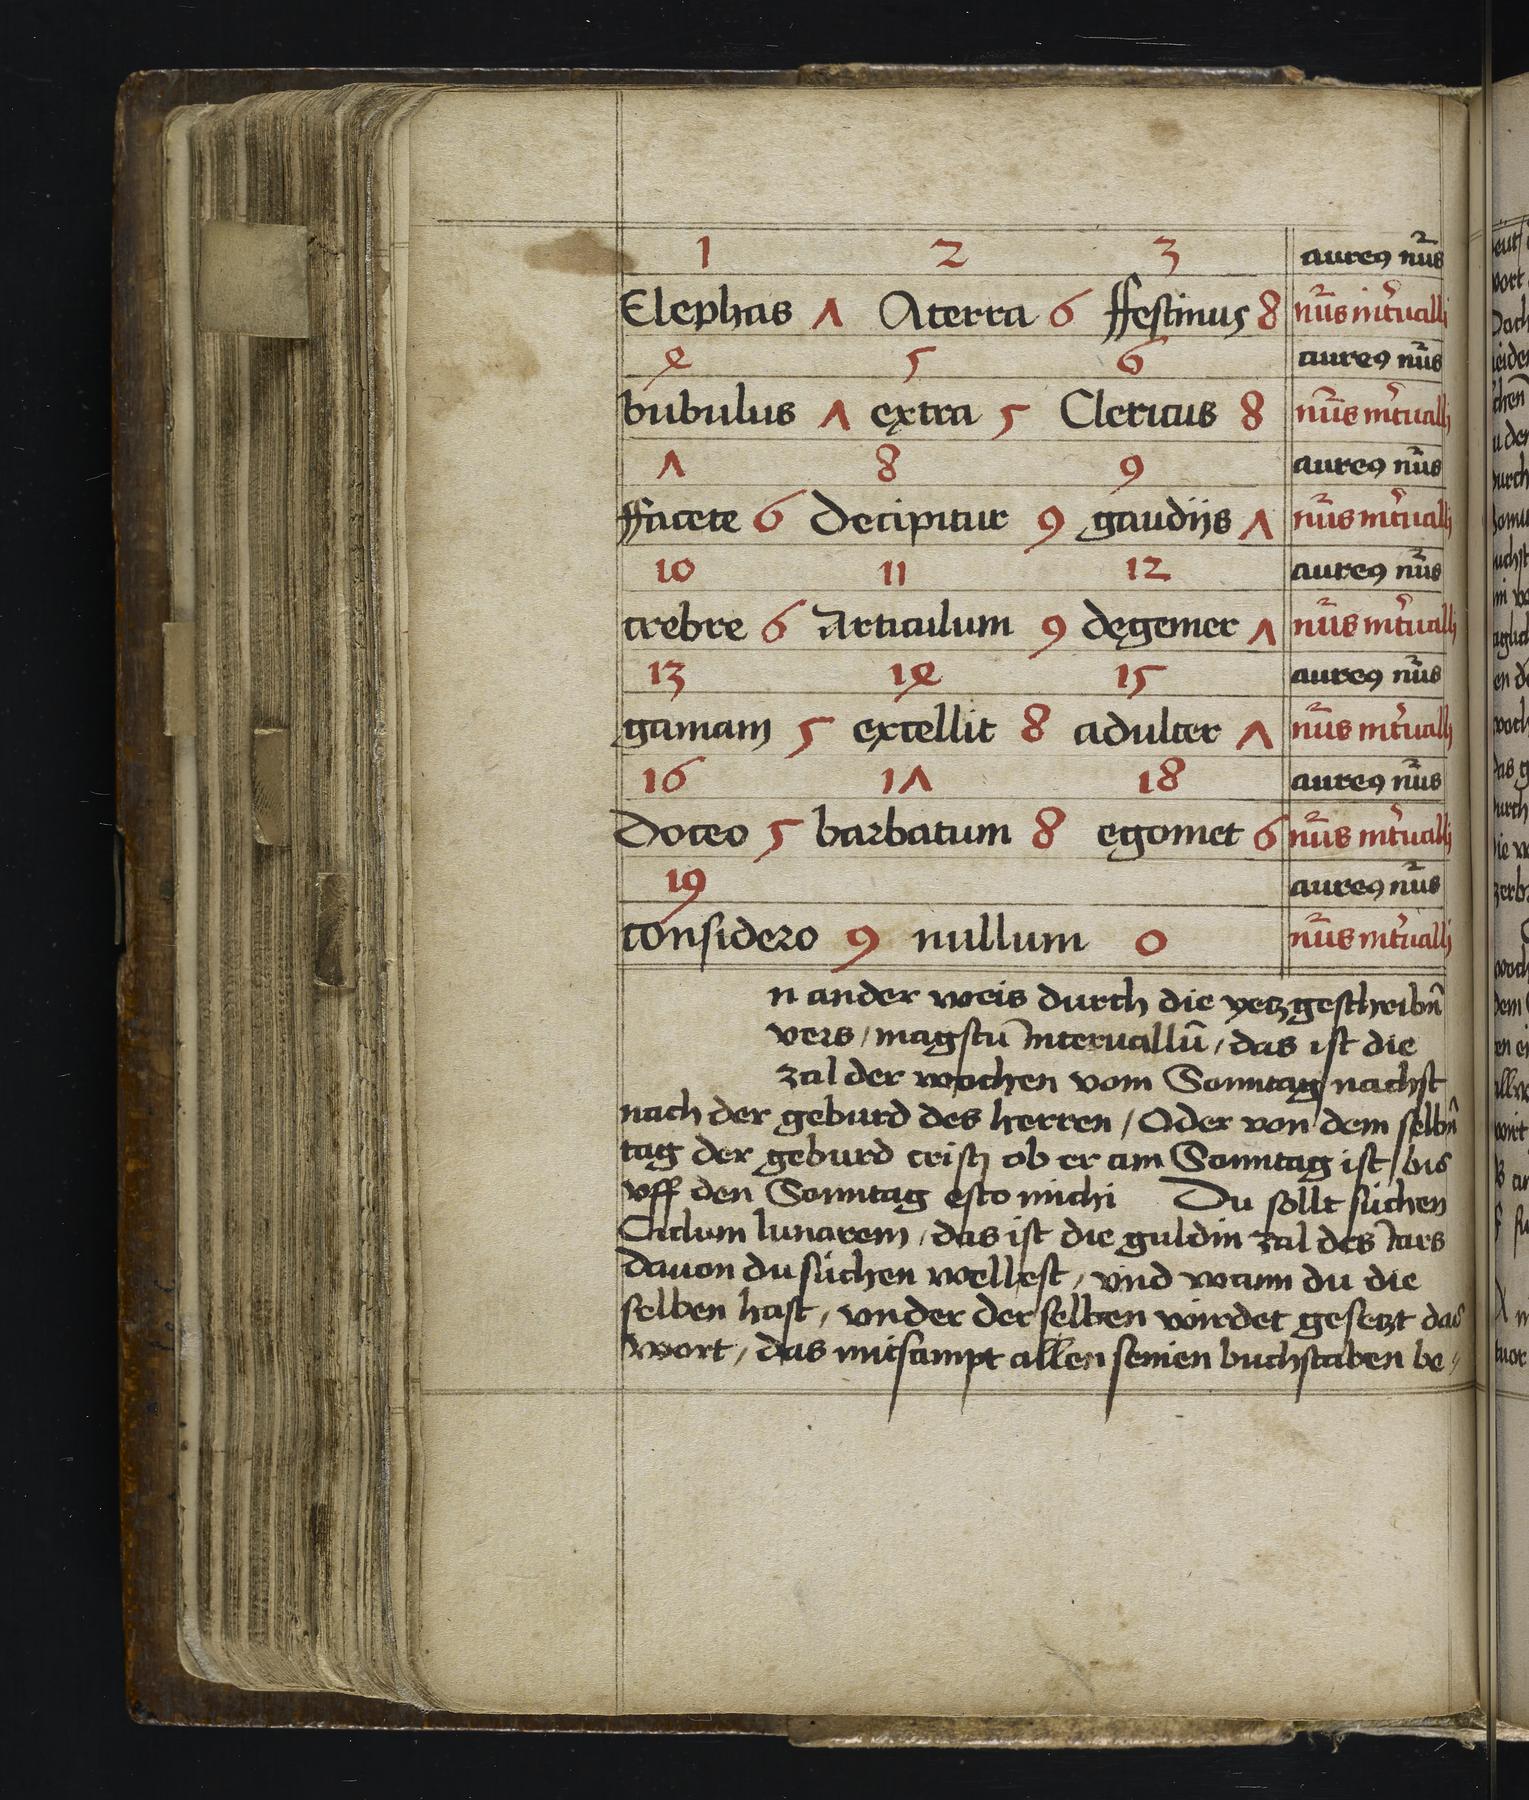 1 2 3 aureꝰ nūs
Elephas ʌ Aterra 6 ffestinus 8 nūs int͛ualli
ꝭ 5 6 aureꝰ nūs
bubulus ʌ extra 5 Clericus 8 nūs int͛ualli
ʌ 8 9 aureꝰ nūs
ffacete 6 decipitur 9 gaudijs ʌ nūs int͛ualli
10 11 12 aureꝰ nūs
crebre 6 Articulum 9 degener ʌ nūs int͛ualli
13 1ꝭ 15 aureꝰ nūs
gamam 5 excellit 8 adulter ʌ nūs int͛ualli
16 1ʌ 18 aureꝰ nūs
Doceo 5 barbatum 8 egomet 6 nūs int͛ualli
19 aureꝰ nūs
considero 9 nullum 0 nūs int͛ualli
n ander weis durch die yetzgeschribn̄
vers / magstu Interuallū / das ist die
zal der wochen vom Sonntag nachst
nach der geburd des herren / Oder von dem selbn̄
tag der geburd cristi ob er am Sonntag ist / bis
vff den Sonntag esto michi Du sollt suchen
Ciclum lunarem / das ist die guldin zal des Iars
dauon du suchen wellest / vnd wann du die
selben hast / vnder der selben wirdet gesetzt das
wort / das mitsampt allen seinen buchstaben be⸗